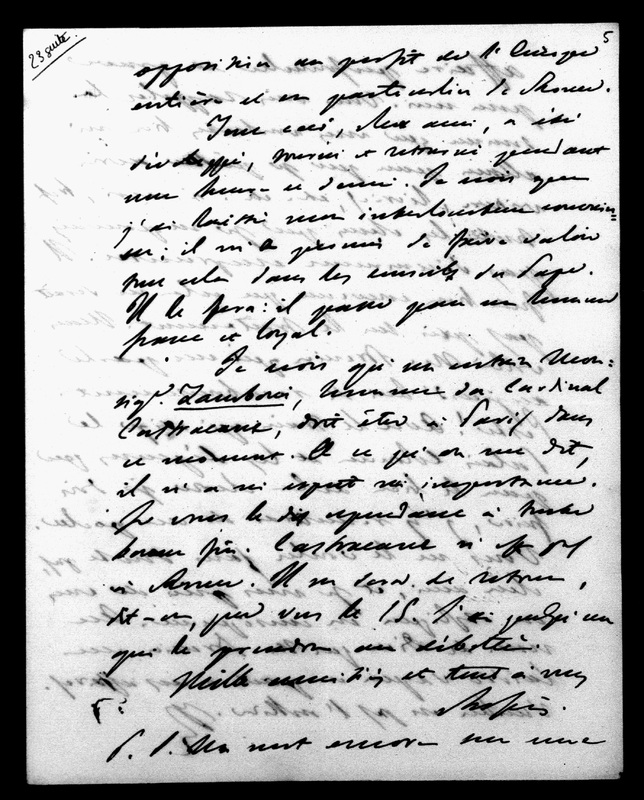 23 suite.
5
opposition au profit de l'Europe
entière et en particulier de Rome.
Tout ceci, cher ami, a été
développé, tourné et retourné pendant
une heure et demie. Je crois que
j'ai laissé mon interlocuteur convain=
cu; il m'a promis de faire valoir
tout cela dans les conseils du Pape.
Il le fera: il passe pour un homme
franc et loyal.
Je crois qu'un certain Mon=
sig.r Zamboni, homme du Cardinal
Castracane, doit être à Paris dans
ce moment. A ce qu'on me dit,
il n'a ni esprit ni importance.
Je vous le dis cependant à toute
bonne fin. Castracane n'est pas
à Rome. Il sera de retour,
dit-on, que vers le 15. J'ai quelqu'un
qui le prendra au débotté.
Mille amitiés et tout à vous
Rossi.
P. S. Un mot encore sur une